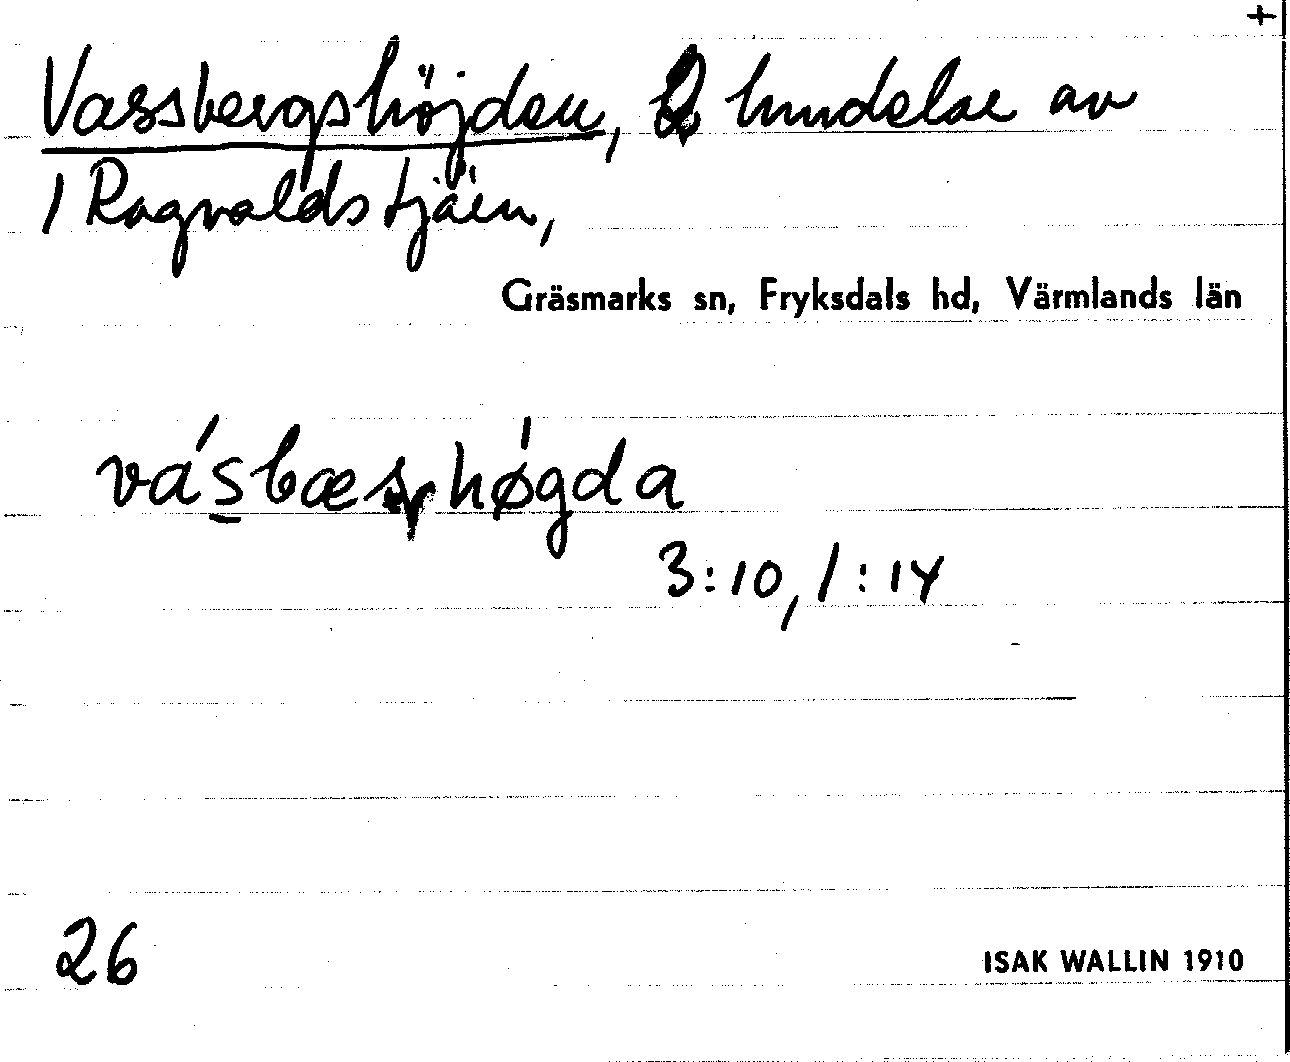 +
Vassbergshöjden, 2 hmdelar av
1 Ragvaldstjärn,
Gräsmarks sn, Fryksdals hd, Värmlands län
vásbæs høgda
3:10, 1:14
26
ISAK WALLIN 1910